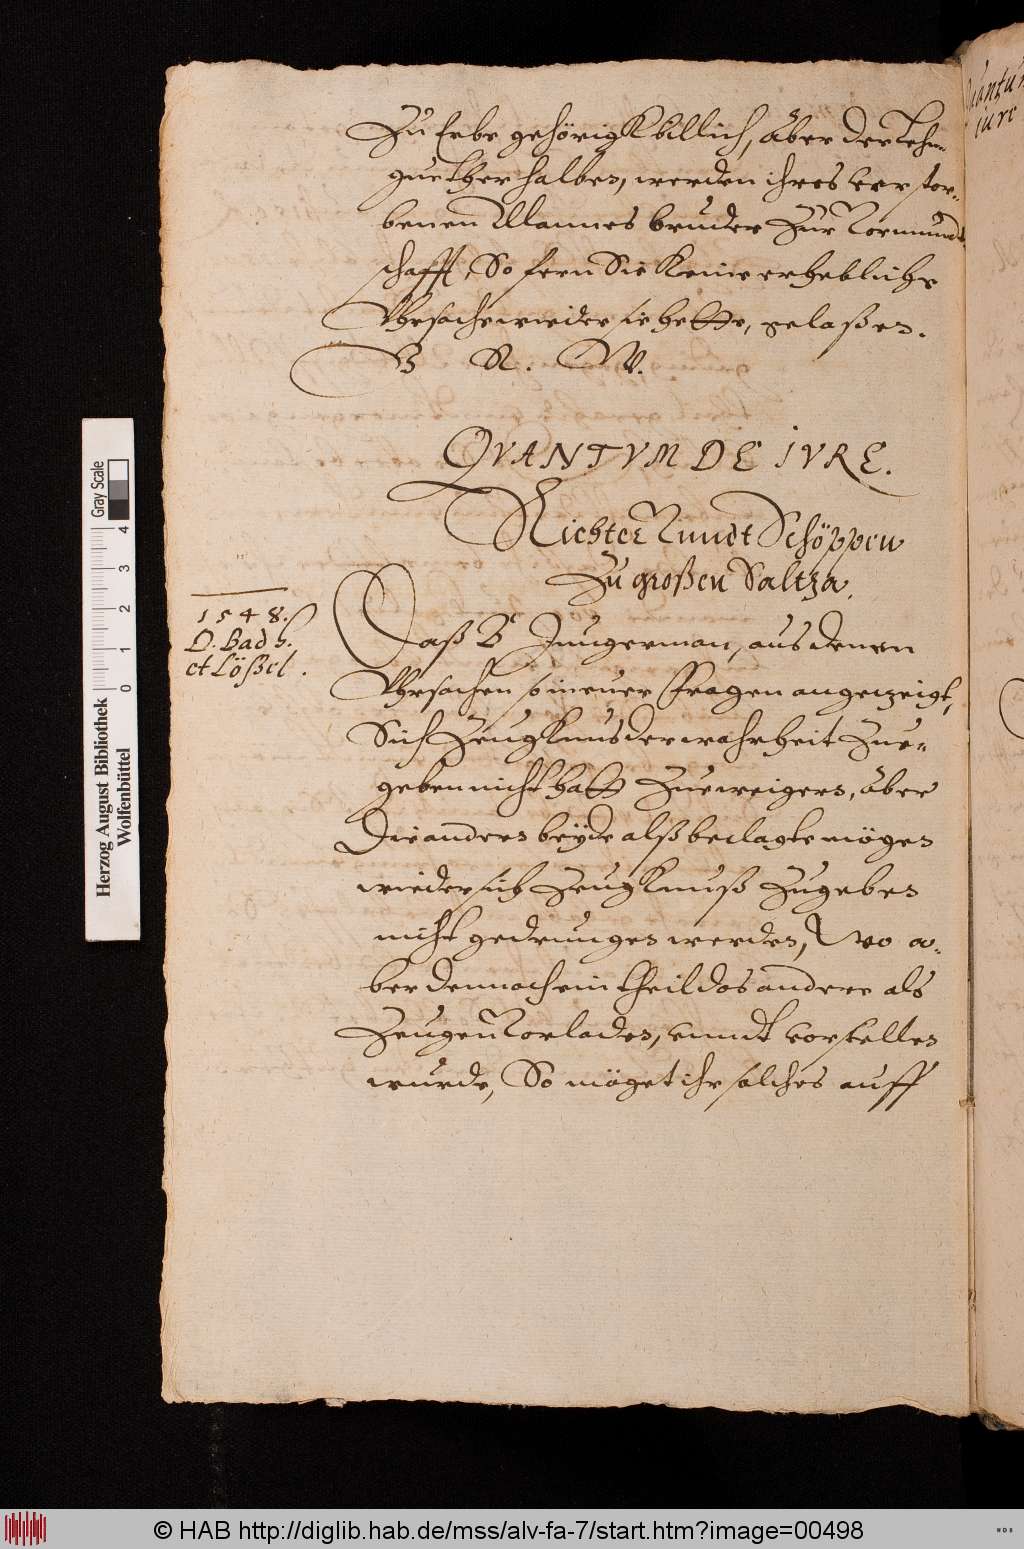 Zu Erbe gehörigk billich, aber der Lehn-
guether halben, werden ihres verstor-
benen Mannes bruder Zur Vormundt-
schafft, So fern Sie Keine erhebliche
Vhrsache wieder sie hette, gelaßen.
V. R. W.
QVANTVM DE IVRE.
Richter Vundt Schöppen
Zu großen Saltza.
1548.
D. Bad h.
et Lößel.
Daß B Jungerman, aus denen
Vhrsachen so in euer Fragen angezeigt,
Sich Zeugknus der warheit Zue-
geben nicht hatt Zueweigern, aber
Die andern beyde alß beclagte mögen
wieder sich Zeugknuß Zugeben
nicht gedrungen werden, Wo a-
ber dennoch ein theil das andere als
Zeugen Vorladen, vnndt vorstellen
wurde, So möget ihr solches auff
Quantu
iure
Herzog August Bibliothek
Wolfenbüttel
Gray Scale
0 1 2 3 4
© HAB http://diglib.hab.de/mss/alv-fa-7/start.htm?image=00498